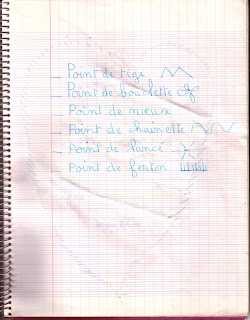 _ Point de tige
_ Point de bouclette
_ Point de nœux
_ Point de chainette
_ Point de lancé
_ Point de festin